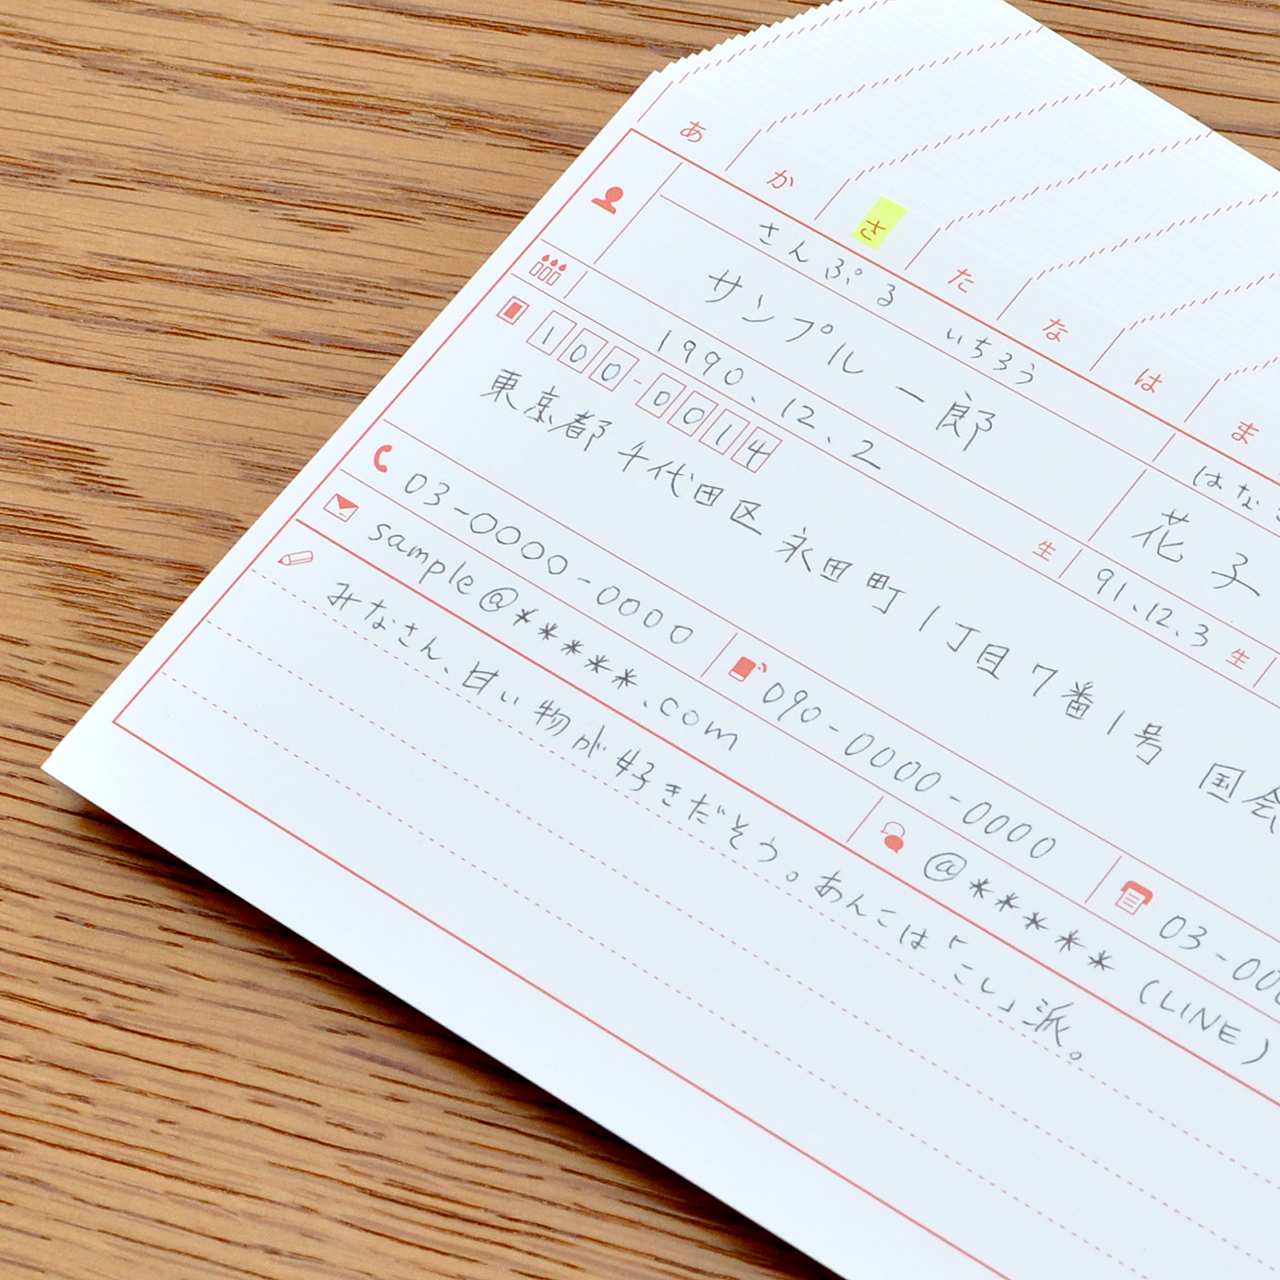 あ か さ た な は ま
さんぷる いちろう はなこ
サンプル 一郎 花子
1990、12、2 生 91、12、3 生
100-0014
東京都 千代田区 永田町 1丁目7番1号 国会
03-0000-0000 090-0000-0000 03-000
sample@*****.com @***** (LINE)
みなさん、甘い物が好きだそう。あんこは「こし」派。